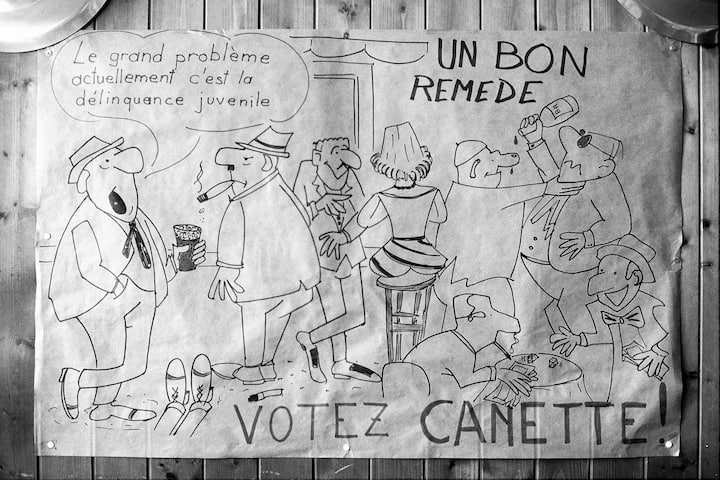 Le grand problème
actuellement c'est la
délinquance juvenile
UN BON
REMEDE
VOTEZ CANETTE!